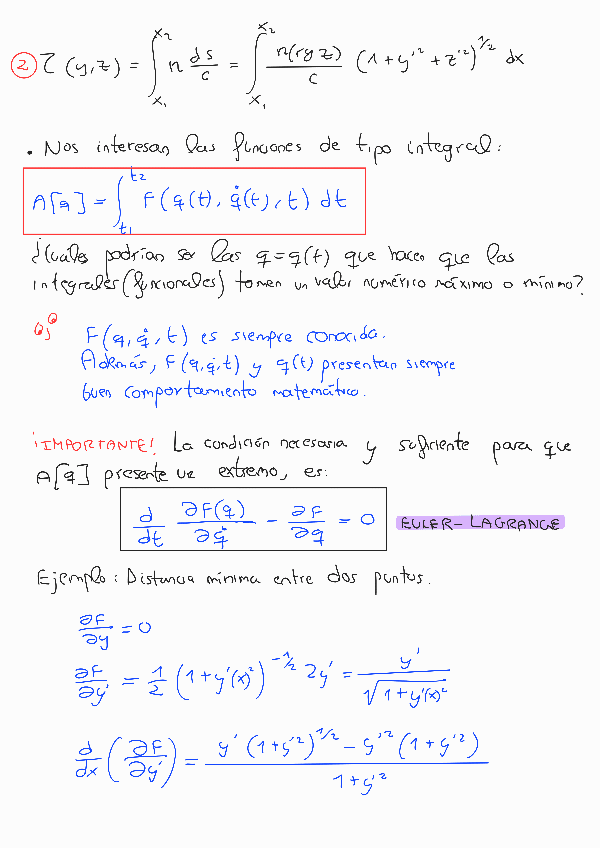 ② τ(y,z) = ∫_{x₁}^{x₂} n ds/c = ∫_{x₁}^{x₂} n(xyz)/c (1+y'²+z'²)^{1/2} dx
• Nos interesan las funciones de tipo integral:
A[q] = ∫_{t1}^{t2} F(q(t), q̇(t), t) dt
¿Cuáles podrían ser las q=q(t) que hacen que las
integrales (funcionales) tomen un valor numérico máximo o mínimo?
F(q, q̇, t) es siempre conocida.
Además, F(q, q̇, t) y q(t) presentan siempre
buen comportamiento matemático.
¡IMPORTANTE! La condición necesaria y suficiente para que
A[q] presente un extremo, es:
d/dt ∂F(q)/∂q̇ − ∂F/∂q = 0 EULER-LAGRANGE
Ejemplo: Distancia mínima entre dos puntos.
∂F/∂y = 0
∂F/∂y' = 1/2 (1+y'(x)²)^{-1/2} 2y' = y'/√(1+y'(x)²)
d/dx (∂F/∂y') = (y'(1+y'²)^{1/2} − y'²(1+y'²))/(1+y'²)